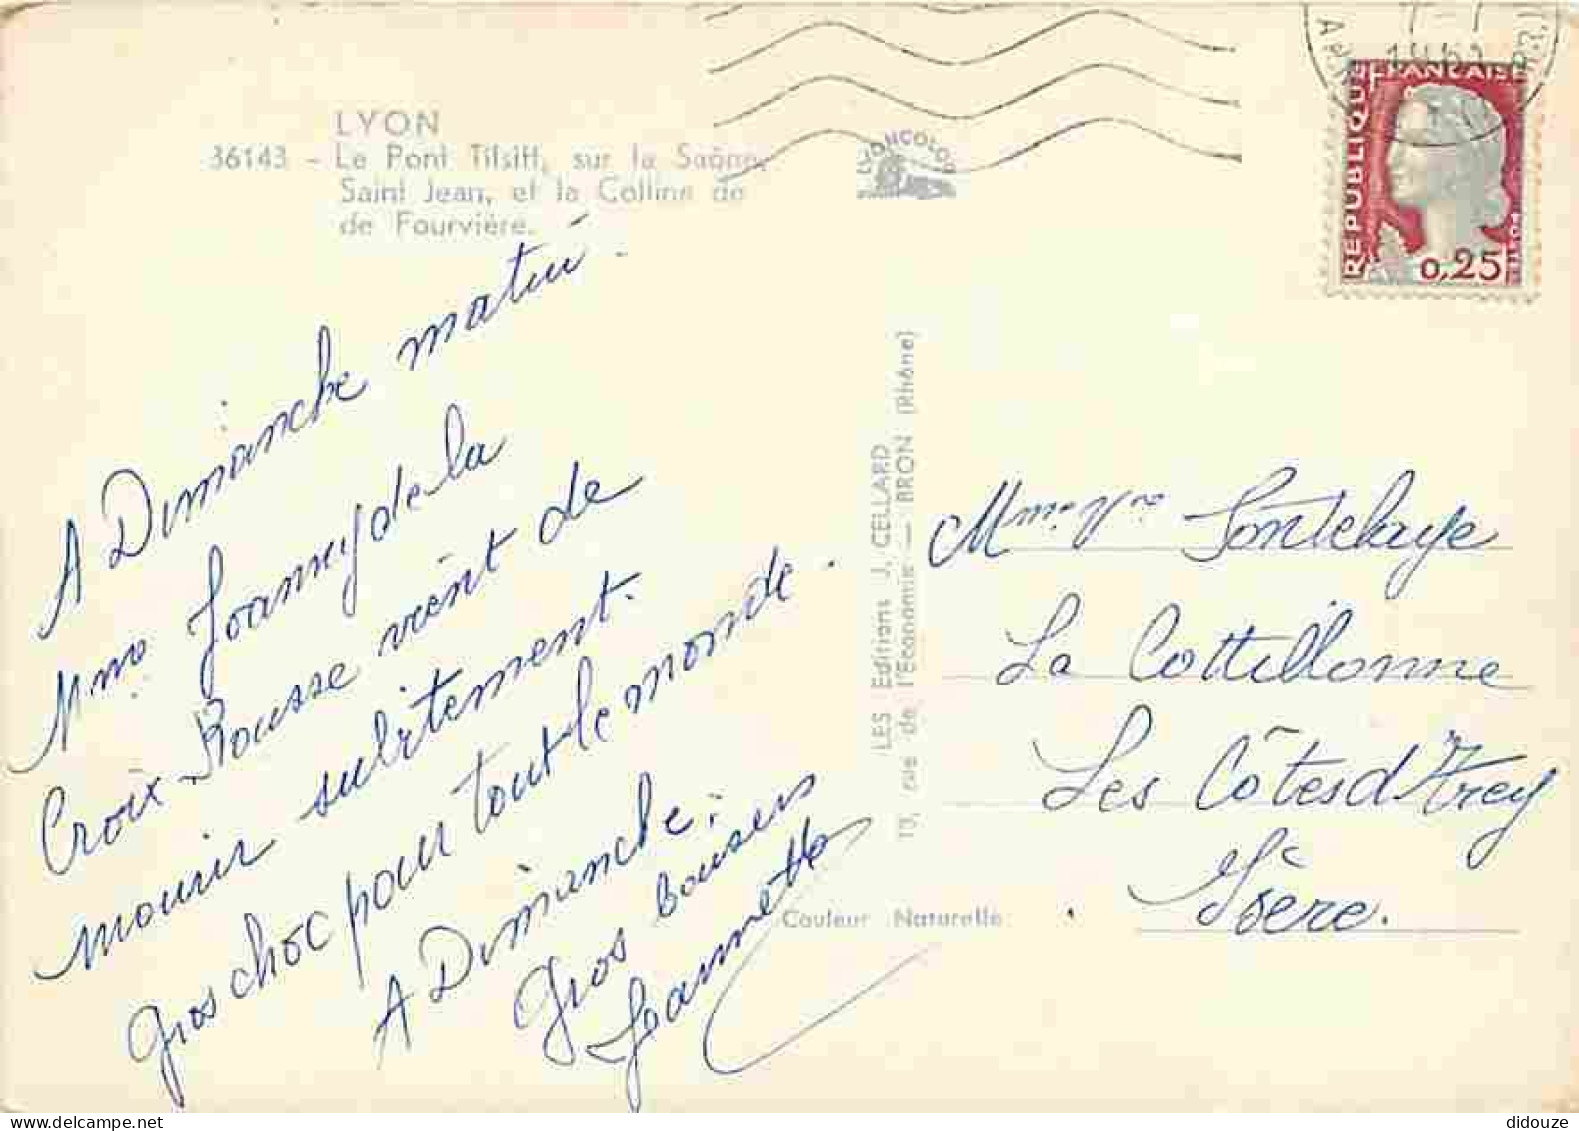 LYON
36143 - Le Pont Tilsitt, sur la Saône,
Saint Jean, et la Colline de
de Fourvière.
LYONCOLOR
REPUBLIQUE FRANÇAISE
0,25
POSTES
A Dimanche matin.
Mme Joanny de la
Croix Rousse vient de
mourir subitement.
Gros choc pour tout le monde.
A Dimanche.
Gros baisers
Jeannette
LES Editions J. CELLARD
10, rue de l'Economie — BRON (Rhône)
Couleur Naturelle
Mme Vve Fontelaye
La Cottillonne
Les Côtes d'Arey
Isère.
didouze